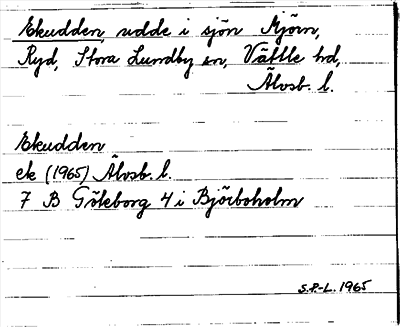 Ekudden, udde i sjön Mjörn,
Ryd, Stora Lundby sn, Vättle hd,
Älvsb. l.
Ekudden
ek (1965) Älvsb. l.
7 B Göteborg 4 i Björboholm
S.P.-L. 1965